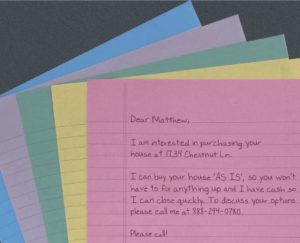 Dear Matthew,
I am interested in purchasing your
house at 1734 Chestnut Ln.
I can buy your house 'AS IS', so you won't
have to fix anything up and I have cash so
I can close quickly. To discuss your options
please call me at 888-294-0780.
Please call!